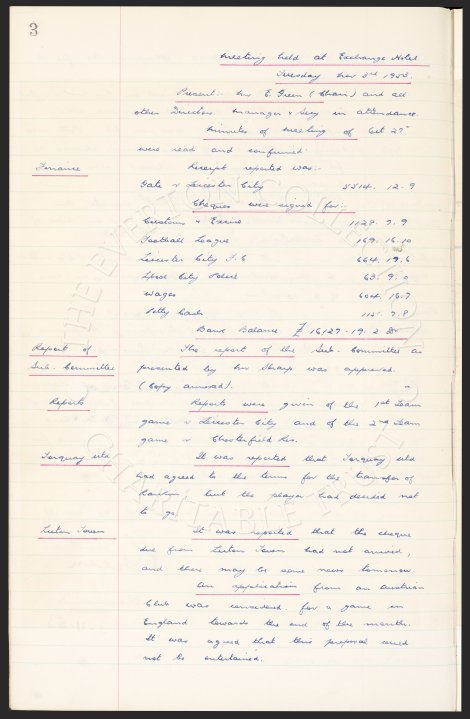 3
Meeting held at Exchange Hotel
Tuesday Nov 3rd 1953.
Present:- Mr E. Green (Chair) and all
other Directors. Manager & Secy in attendance.
Minutes of Meeting of Oct 27th
were read and confirmed.
Finance
Receipt reported was:-
Gate v Leicester City 5514. 12. 9
Cheques were signed for:-
Customs & Excise 1129. 9. 9
Football League 169. 16. 10
Leicester City F.C 664. 19. 6
Lpool City Police 63. 9. 0
Wages 604. 16. 7
Petty Cash 115. 7. 8
Bank Balance £ 16127. 19. 2 Dr
Report of
Sub. Committee
The report of the Sub. Committee as
presented by Mr Sharp was approved.
(Copy annexed).
Reports
Reports were given of the 1st Team
game v Leicester City and of the 2nd Team
game v Chesterfield Res.
Torquay Utd
It was reported that Torquay Utd
had agreed to the terms for the transfer of
Rankin, but the player had decided not
to go.
Luton Town
It was reported that the cheque
due from Luton Town had not arrived,
and there may be some news tomorrow.
An application from an Austrian
Club was considered for a game in
England towards the end of the month.
It was agreed that this proposal could
not be entertained.
THE EVERTON COLLECTION
CHARITABLE TRUST